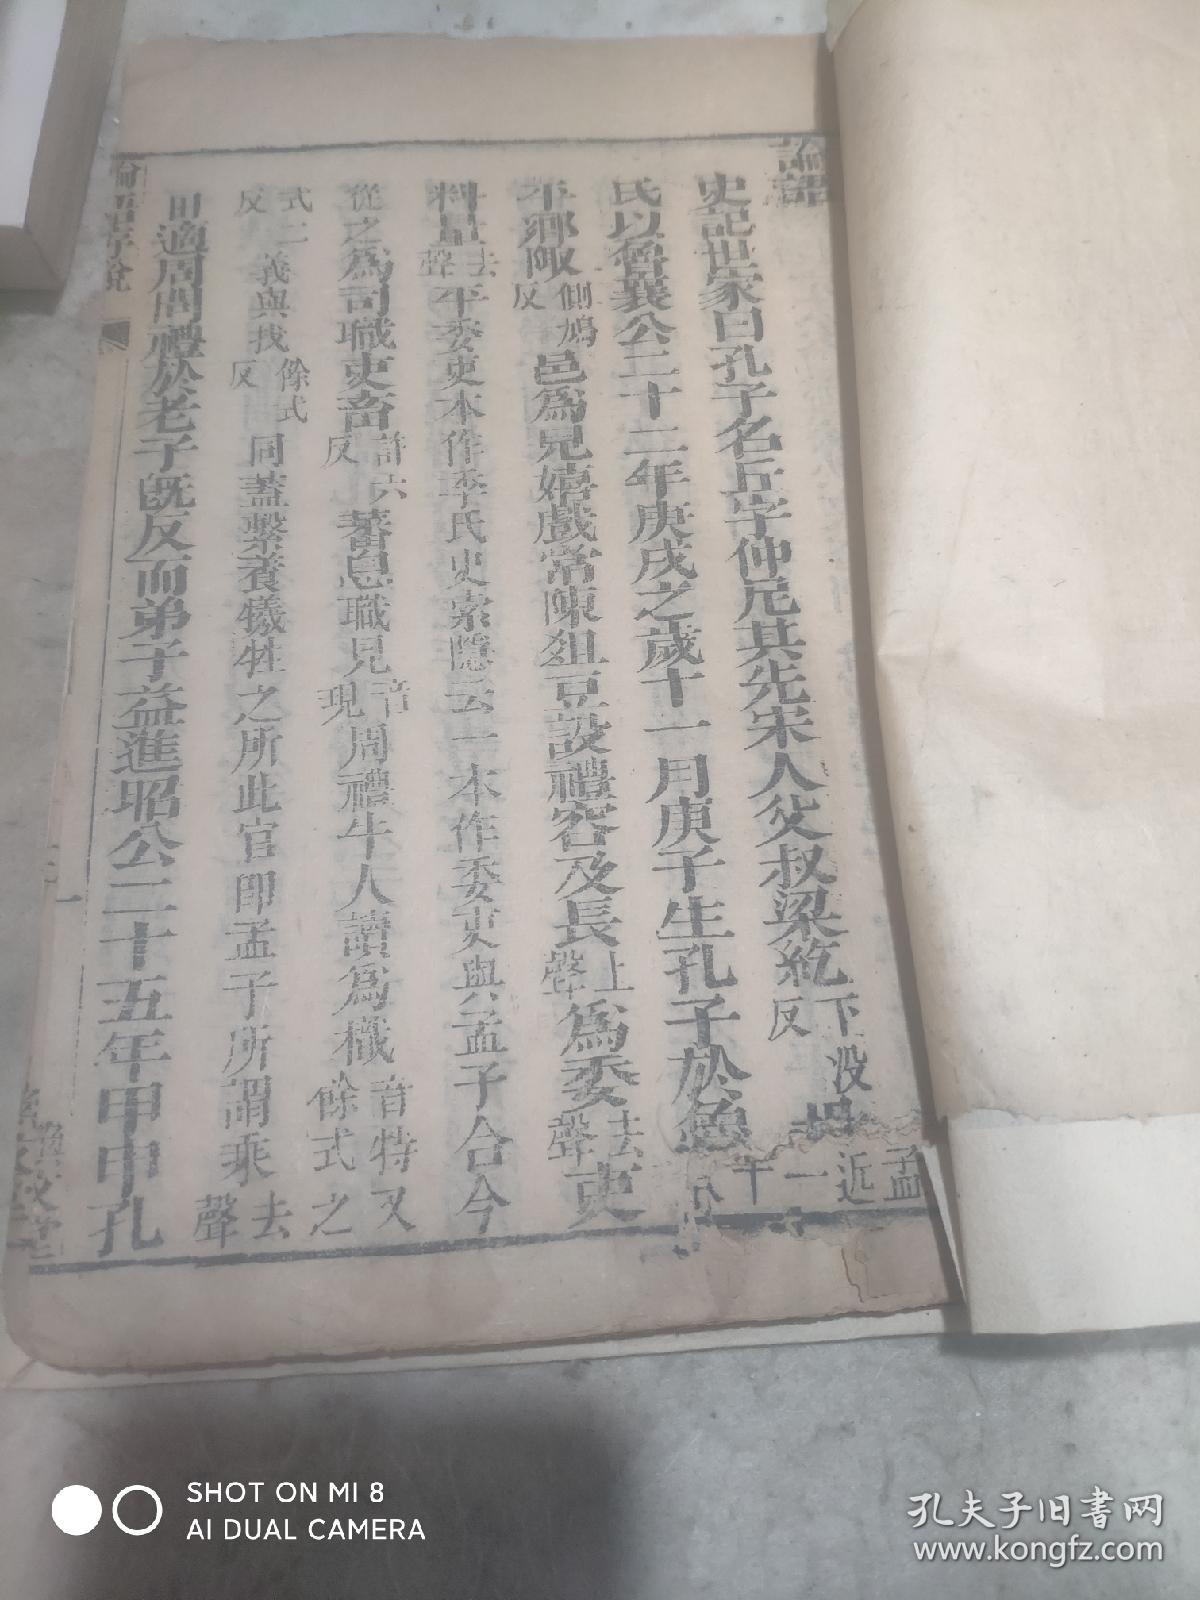 論語
史記世家曰孔子名丘字仲尼其先宋人父叔梁紇下沒反
孟
近
一
十
氏以魯襄公二十二年庚戌之歲十一月庚子生孔子於魯
平鄉陬側鳩反邑爲兒嬉戲常陳俎豆設禮容及長上聲爲委去聲吏
料量去聲平委吏本作季氏史索隱云一本作委吏與孟子合今
從之爲司職吏畜許六反蕃息職見音現周禮牛人讀爲樴音特又餘式之
式二反義與杙餘式反同蓋繫養犧牲之所此官即孟子所謂乘去聲
田適周問禮於老子既反而弟子益進昭公二十五年甲申孔
論語序說
一
SHOT ON MI 8
AI DUAL CAMERA
孔夫子旧书网
www.kongfz.com